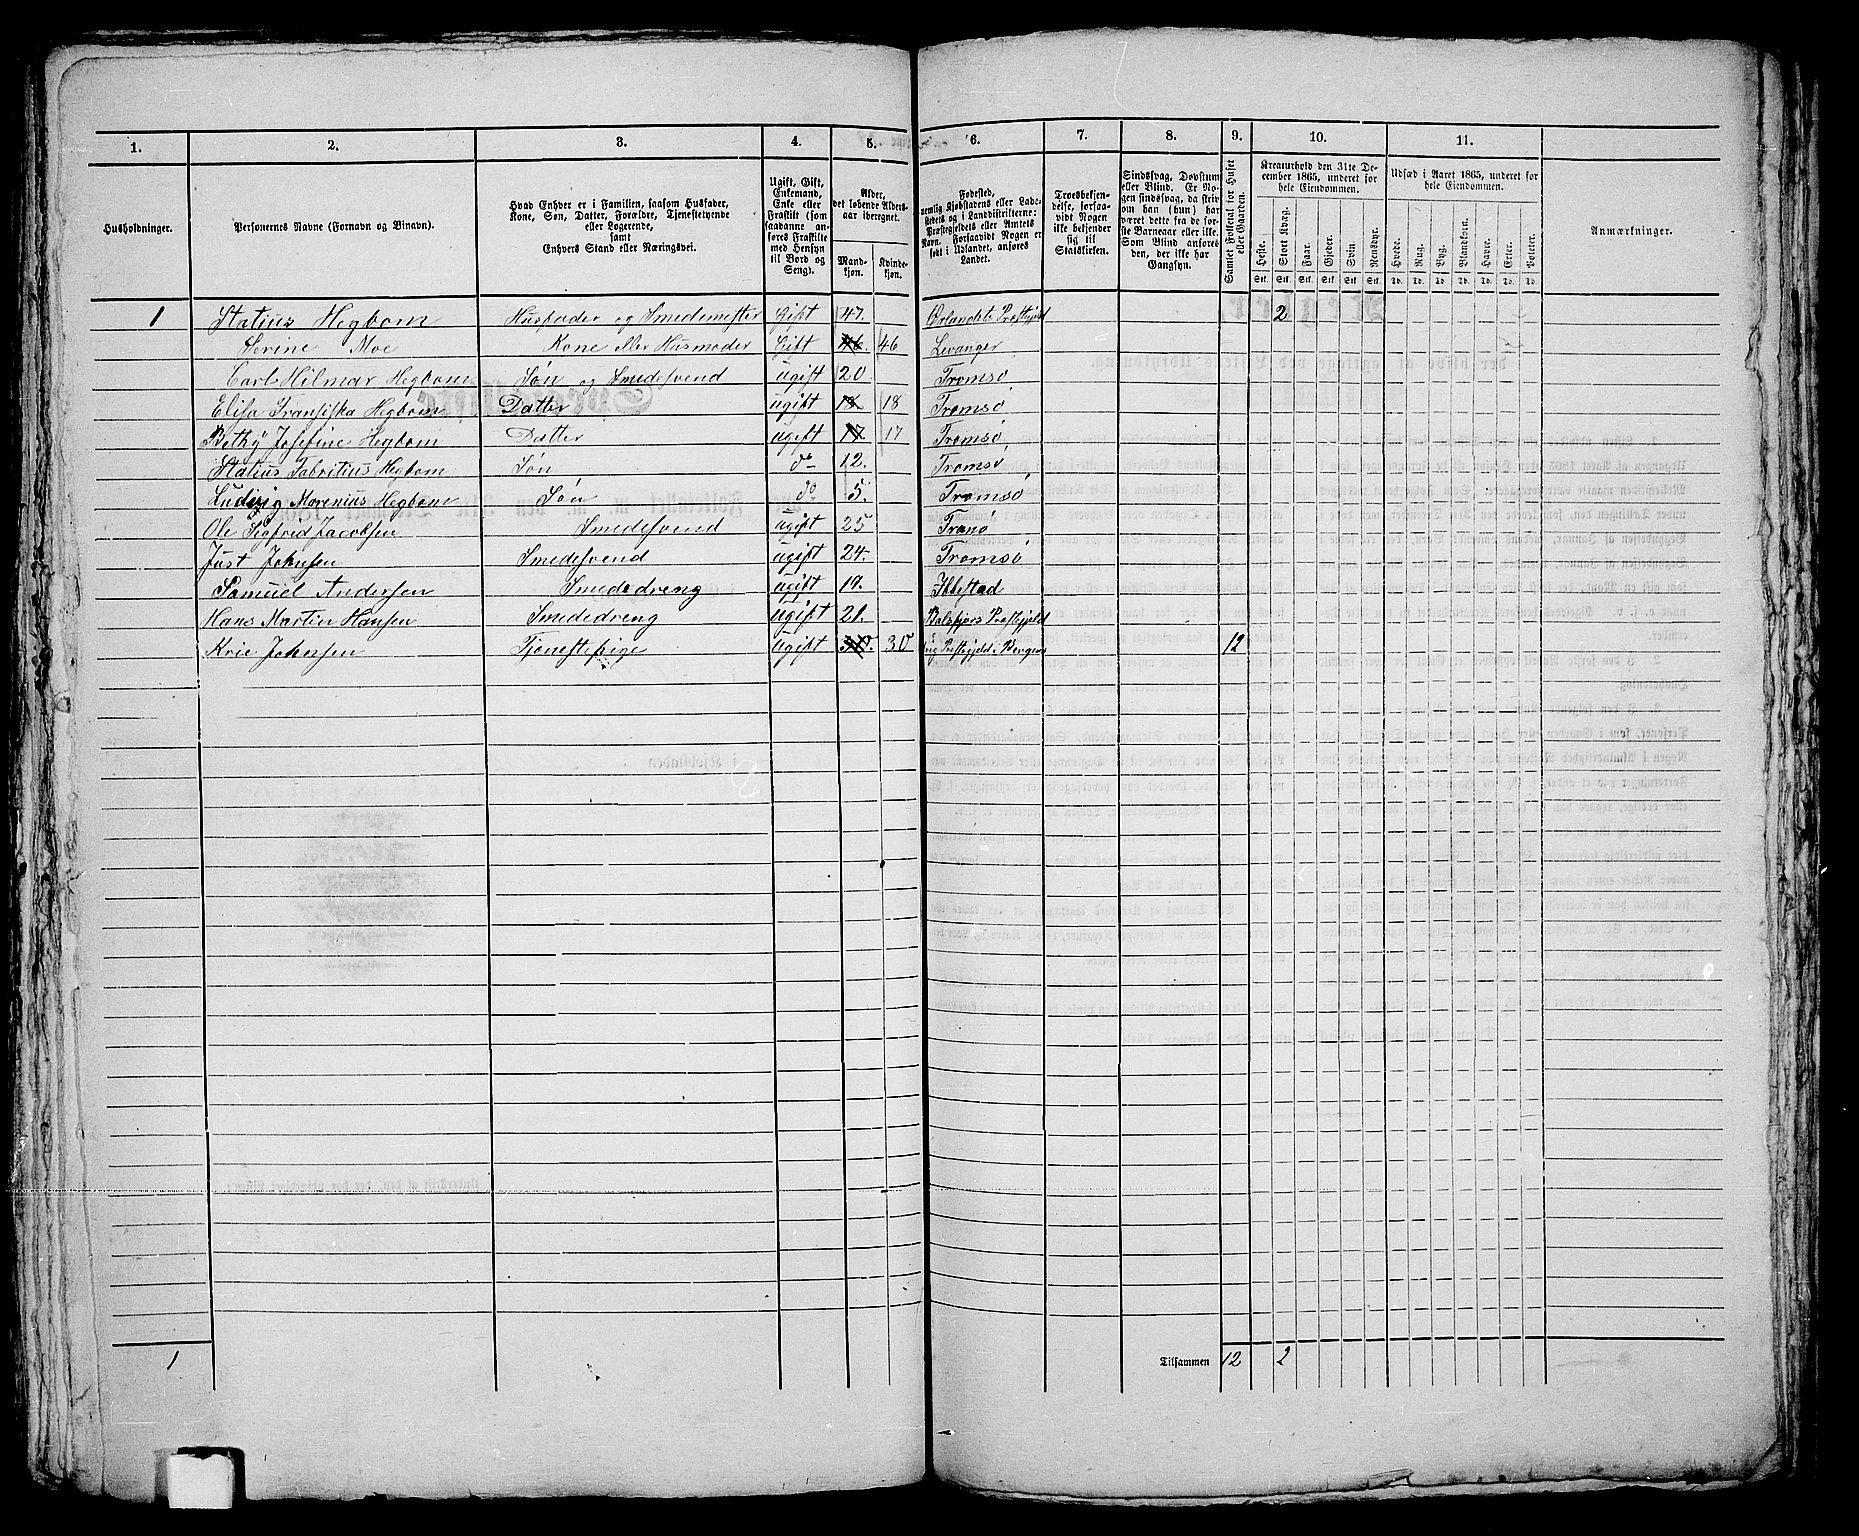 1. 2. 3. 4. 5. 6. 7. 8. 9. 10. 11.
Husholdninger.
Personernes Navne (Fornavn og Binavn).
Hvad Enhver er i Familien, saasom Husfader,
Kone, Søn, Datter, Forældre, Tjenestetyende
eller Logerende,
samt
Enhvers Stand eller Næringsvei.
Ugift, Gift,
Enkemand,
Enke eller
Fraskilt (som
saadanne an-
føres Fraskilte
med Hensyn
til Bord og
Seng).
Alder,
det løbende Alders-
aar iberegnet.
Mand-
kjøn.
Kvinde-
kjøn.
Fødested,
nemlig Kjøbstadens eller Lade-
stedets og i Landdistrikterne:
Præstegjeldets eller Amtets
Navn. Forsaavidt Nogen er
født i Udlandet, anføres
Landet.
Troesbekjen-
delse, forsaa-
vidt Nogen
ikke bekjender
sig til
Statskirken.
Sindssvag, Døvstum
eller Blind. Er No-
gen sindssvag, da skriv
om han (hun) har
været dette fra de før-
ste Barneaar eller ikke.
Som Blind anføres
den, der ikke har
Gangsyn.
Samlet Folketal for Huset
eller Gaarden.
Kreaturhold den 31te De-
cember 1865, underet for
hele Eiendommen.
Heste. Stort Kvæg. Faar. Gjeder. Svin. Rensdyr.
Stk. Stk. Stk. Stk. Stk. Stk.
Udsæd i Aaret 1865, underet for
hele Eiendommen.
Hvede. Rug. Byg. Blandkorn. Havre. Erter. Poteter.
Td. Td. Td. Td. Td. Td. Td.
Anmærkninger.
1 Statius Hegbom Husfader og Smedemester Gift 47. Ørlandets Præstgjeld 2
Serine Moe Kone eller Husmoder Gift 46. 46 Levanger
Carl Hilmar Hegbom Søn og Smedesvend ugift 20 Tromsø
Elisa Fransiska Hegbom Datter ugift 18. 18 Tromsø
Bethy Josefine Hegbom Datter ugift 17. 17 Tromsø
Statius Fabritius Hegbom Søn do 12. Tromsø
Ludvig Marenius Hegbom Søn do 5. Tromsø
Ole Sigfrid Jacobsen Smedesvend ugift 25 Tranø
Just Johnsen Smedesvend ugift 24. Tromsø
Samuel Andersen Smededreng ugift 19. Ibbestad
Hans Martin Hansen Smededreng ugift 21. Balsfjors Præstgjeld
Krie Johnsen Tjenestepige ugift 30. 30 Præstgjeld i Bergens 12
1 Tilsammen 12 2